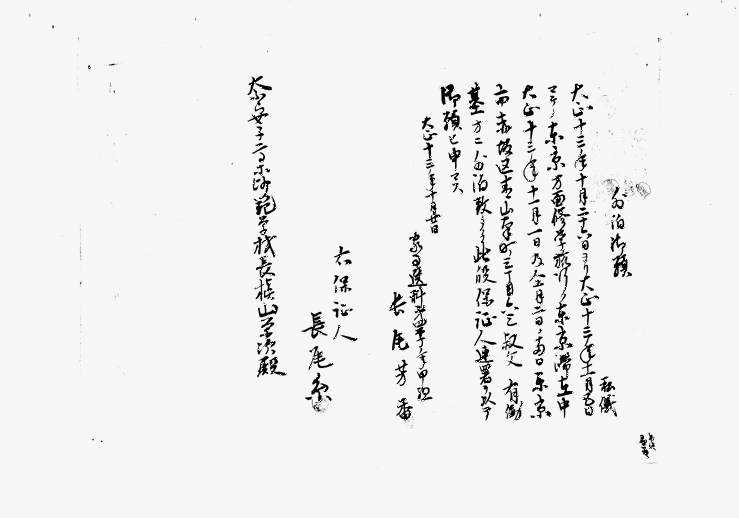 外泊御願
私儀
大正十三年十月二十六日ヨリ大正十三年十一月五日
マデノ東京方面修学旅行ノ東京滞在中
大正十三年十一月一日及仝十一月二日ノ両日東京
市赤坂区青山南町三丁目六三叔父 有働
方ニ外泊致シタク此段保証人連署ヲ以テ
御願ヒ申上ス
大正十三年十月廿日
家事選科第四学年甲組
長尾芳香
右保証人
長尾
奈良女子高等師範学校長槇山栄次殿